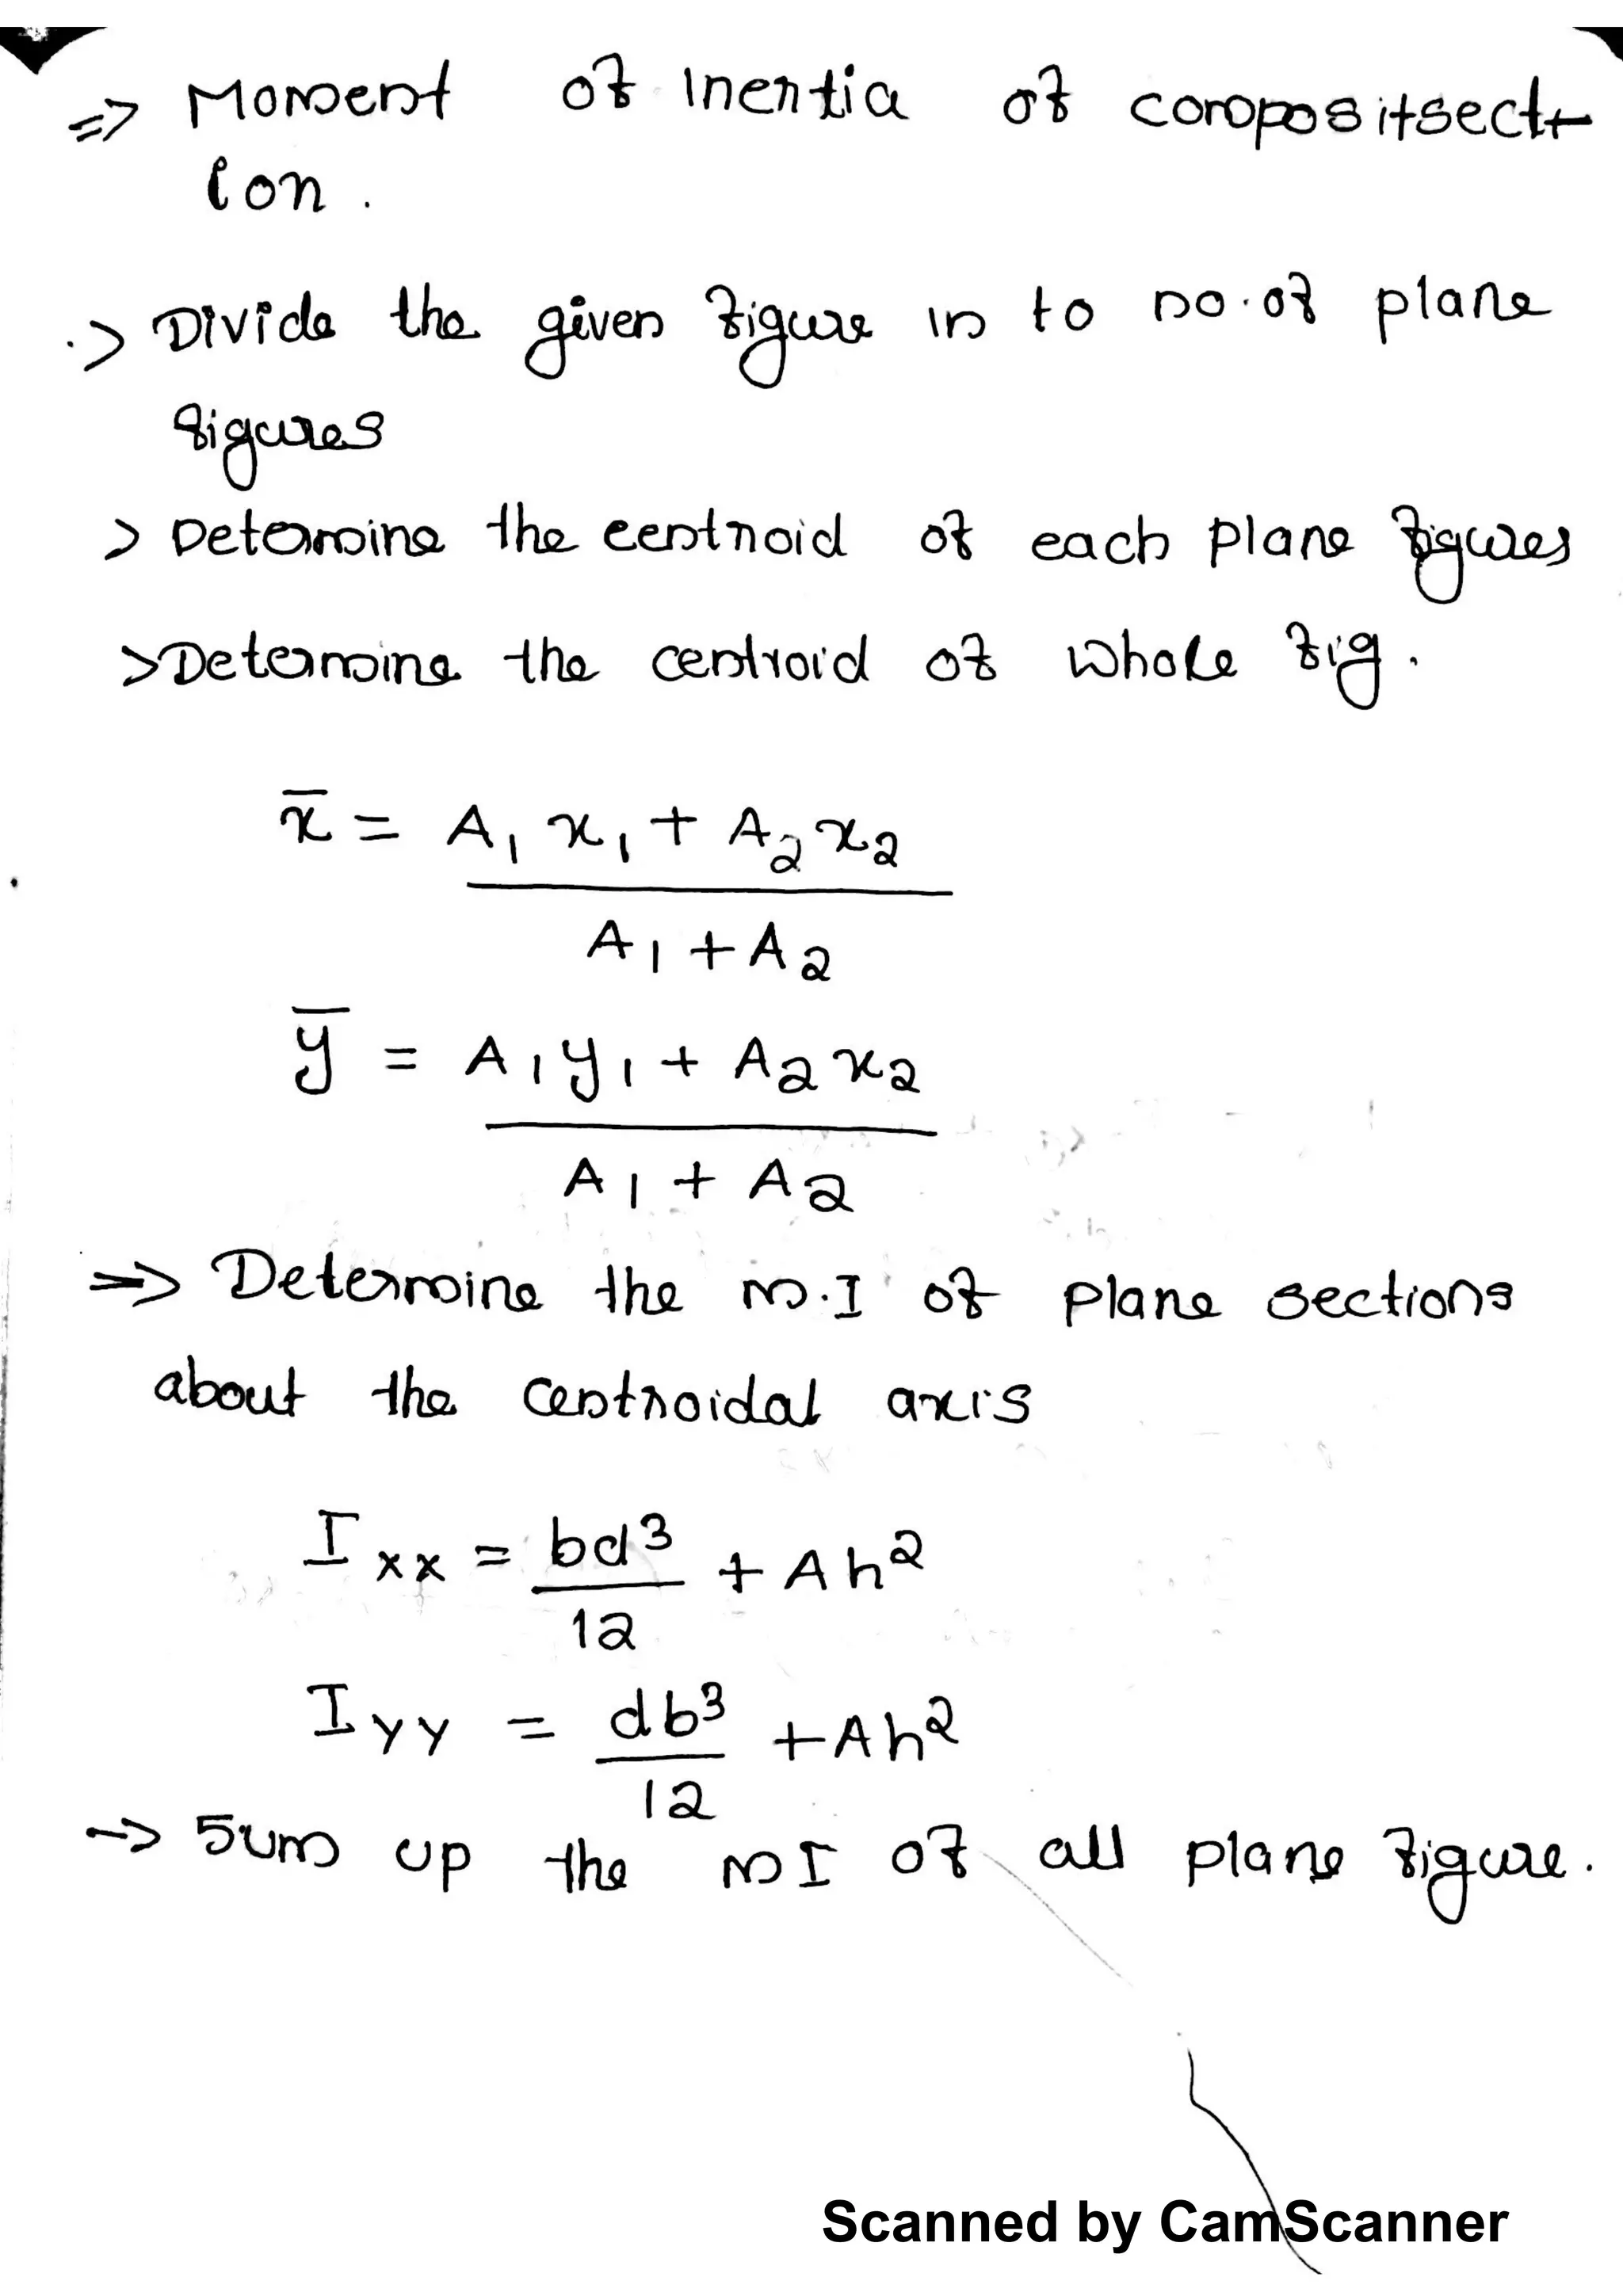 => Moment of Inertia of compositsect-
ion.
.> Divide the given figure in to no.of plane
figures
> Determine the centroid of each plane figures
>Determine the centroid of whole fig.
x̄ = A₁ x₁ + A₂ x₂
A₁ + A₂
ȳ = A₁ y₁ + A₂ x₂
A₁ + A₂
=> Determine the m.I of plane sections
about the centroidal axis
I xx = bd³ + Ah²
12
I yy = db³ + Ah²
12
-> Sum up the mI of all plane figure.
Scanned by CamScanner